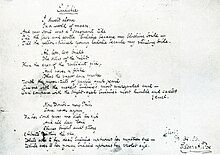 Eulalie
I dwelt alone
In a world of moan,
And my soul was a stagnant tide
Till the fair and gentle Eulalie became my blushing bride
Till the yellow-haired young Eulalie became my smiling bride.
Ah, less, less bright
The stars of the night
Than the eyes of the radiant girl,
And never a flake
That the vapor can make
With the moon-tints of purple and pearl
Can vie with the modest Eulalie's most unregarded curl
Can compare with the bright-eyed Eulalie's most humble and careless
curl.
Now Doubt — now Pain
Come never again,
For her soul gives me sigh for sigh
And all day long
Shines bright and strong
Astarté within the sky
While ever to her dear Eulalie upturns her matron eye
While ever to her young Eulalie upturns her violet eye.
Edgar A. Poe